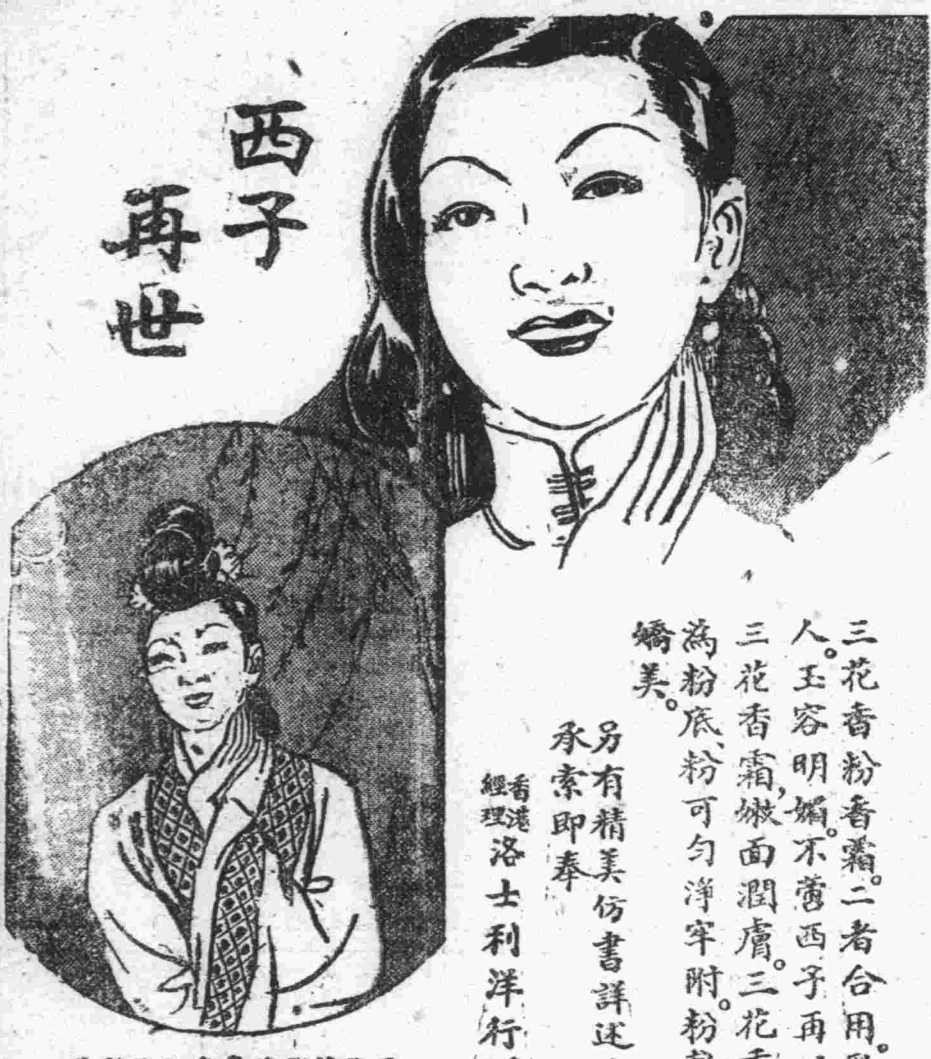 西子
再世
三花香粉香霜。二者合用。
人。玉容明媚。不啻西子再
三花香霜,嫩面潤膚。三花香
為粉底、粉可勻淨牢附。粉
嬌美。
另有精美仿書詳述
承索即奉
香港
經理
洛士利洋行